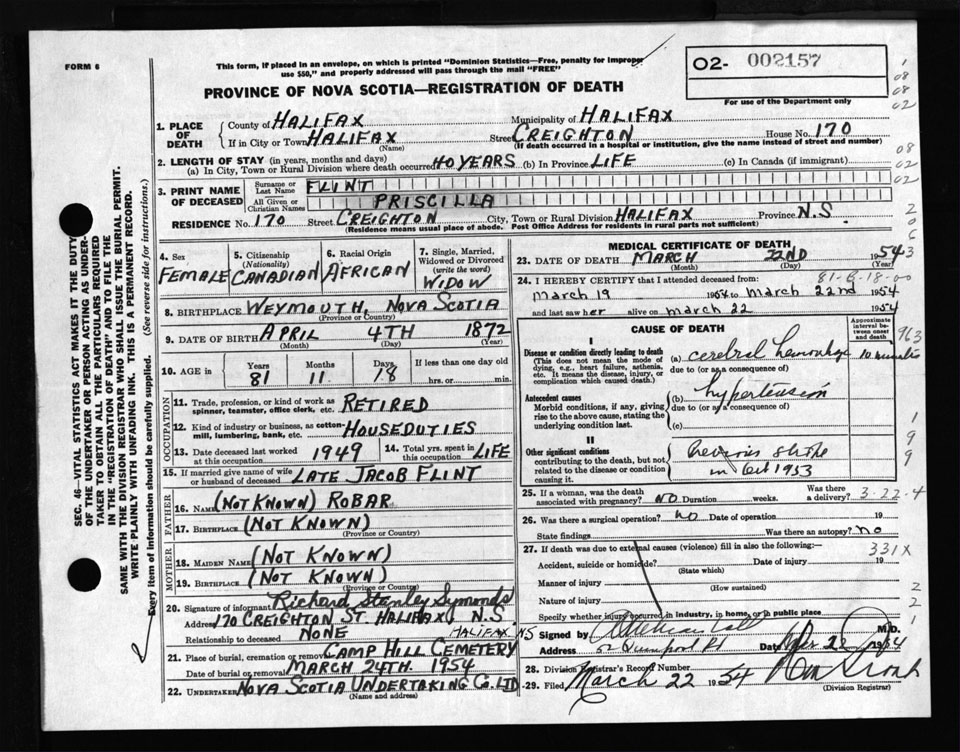 FORM 6
This form, if placed in an envelope, on which is printed "Dominion Statistics—Free, penalty for improper
use $50," and properly addressed will pass through the mail "FREE"
O2- 002157
For use of the Department only
PROVINCE OF NOVA SCOTIA—REGISTRATION OF DEATH
1. PLACE OF DEATH
County of HALIFAX Municipality of HALIFAX
If in City or Town HALIFAX Street CREIGHTON House No. 170
(Name) (If death occurred in a hospital or institution, give the name instead of street and number)
2. LENGTH OF STAY (in years, months and days)
(a) In City, Town or Rural Division where death occurred 40 YEARS (b) In Province LIFE (c) In Canada (if immigrant)
3. PRINT NAME OF DECEASED
Surname or Last Name FLINT
All Given or Christian Names PRISCILLA
RESIDENCE No. 170 Street CREIGHTON City, Town or Rural Division HALIFAX Province N.S.
(Residence means usual place of abode. Post Office Address for residents in rural parts not sufficient)
4. Sex FEMALE
5. Citizenship (Nationality) CANADIAN
6. Racial Origin AFRICAN
7. Single, Married, Widowed or Divorced (write the word) WIDOW
8. BIRTHPLACE WEYMOUTH, NOVA SCOTIA
(Province or Country)
9. DATE OF BIRTH APRIL 4TH 1872
(Month) (Day) (Year)
10. AGE in Years 81 Months 11 Days 18 If less than one day old hrs. or min.
OCCUPATION
11. Trade, profession, or kind of work as spinner, teamster, office clerk, etc. RETIRED
12. Kind of industry or business, as cotton-mill, lumbering, bank, etc. HOUSEDUTIES
13. Date deceased last worked at this occupation 1949
14. Total yrs. spent in this occupation LIFE
15. If married give name of wife or husband of deceased LATE JACOB FLINT
FATHER
16. Name (NOT KNOWN) ROBAR
17. Birthplace (NOT KNOWN)
(Province or Country)
MOTHER
18. MAIDEN NAME (NOT KNOWN)
19. BIRTHPLACE (NOT KNOWN)
(Province or Country)
20. Signature of informant Richard Stanley Symonds
Address 170 CREIGHTON ST. HALIFAX, N.S
Relationship to deceased NONE
21. Place of burial, cremation or removal CAMP HILL CEMETERY HALIFAX N.S
Date of burial or removal MARCH 24TH. 1954
22. UNDERTAKER NOVA SCOTIA UNDERTAKING CO. LTD
(Name and address)
MEDICAL CERTIFICATE OF DEATH
23. DATE OF DEATH MARCH 22ND 1954
(Month) (Day)
24. I HEREBY CERTIFY that I attended deceased from:
March 19 1954 to March 22nd 1954
and last saw her alive on March 22 1954
CAUSE OF DEATH
Approximate interval between onset and death
I
Disease or condition directly leading to death
(This does not mean the mode of dying, e.g., heart failure, asthenia, etc. It means the disease, injury, or complication which caused death.)
(a) cerebral hemorrhage 10 minutes
due to (or as a consequence of)
Antecedent causes
Morbid conditions, if any, giving rise to the above cause, stating the underlying condition last.
(b) hypertension
due to (or as a consequence of)
(c)
II
Other significant conditions
contributing to the death, but not related to the disease or condition causing it.
Previous stroke
in Oct 1953
25. If a woman, was the death associated with pregnancy? NO Duration weeks. Was there a delivery?
3-22-4
26. Was there a surgical operation? no Date of operation 19
State findings Was there an autopsy? no
27. If death was due to external causes (violence) fill in also the following:—
331X
Accident, suicide or homicide? Date of injury 19
(State which)
Manner of injury
(How sustained)
Nature of injury
Specify whether injury occurred in industry, in home, or in public place
Signed by M.D.
Address Quinpool Rd Date Mar 22 1954
28. Division Registrar's Record Number
29. Filed March 22 1954
(Division Registrar)
SEC. 46—VITAL STATISTICS ACT MAKES IT THE DUTY
OF THE UNDERTAKER OR PERSON ACTING AS UNDER-
TAKER TO OBTAIN ALL THE PARTICULARS REQUIRED
IN THE "REGISTRATION OF DEATH" AND TO FILE THE
SAME WITH THE DIVISION REGISTRAR WHO SHALL ISSUE THE BURIAL PERMIT.
WRITE PLAINLY WITH UNFADING INK. THIS IS A PERMANENT RECORD.
Every item of information should be carefully supplied. (See reverse side for instructions.)